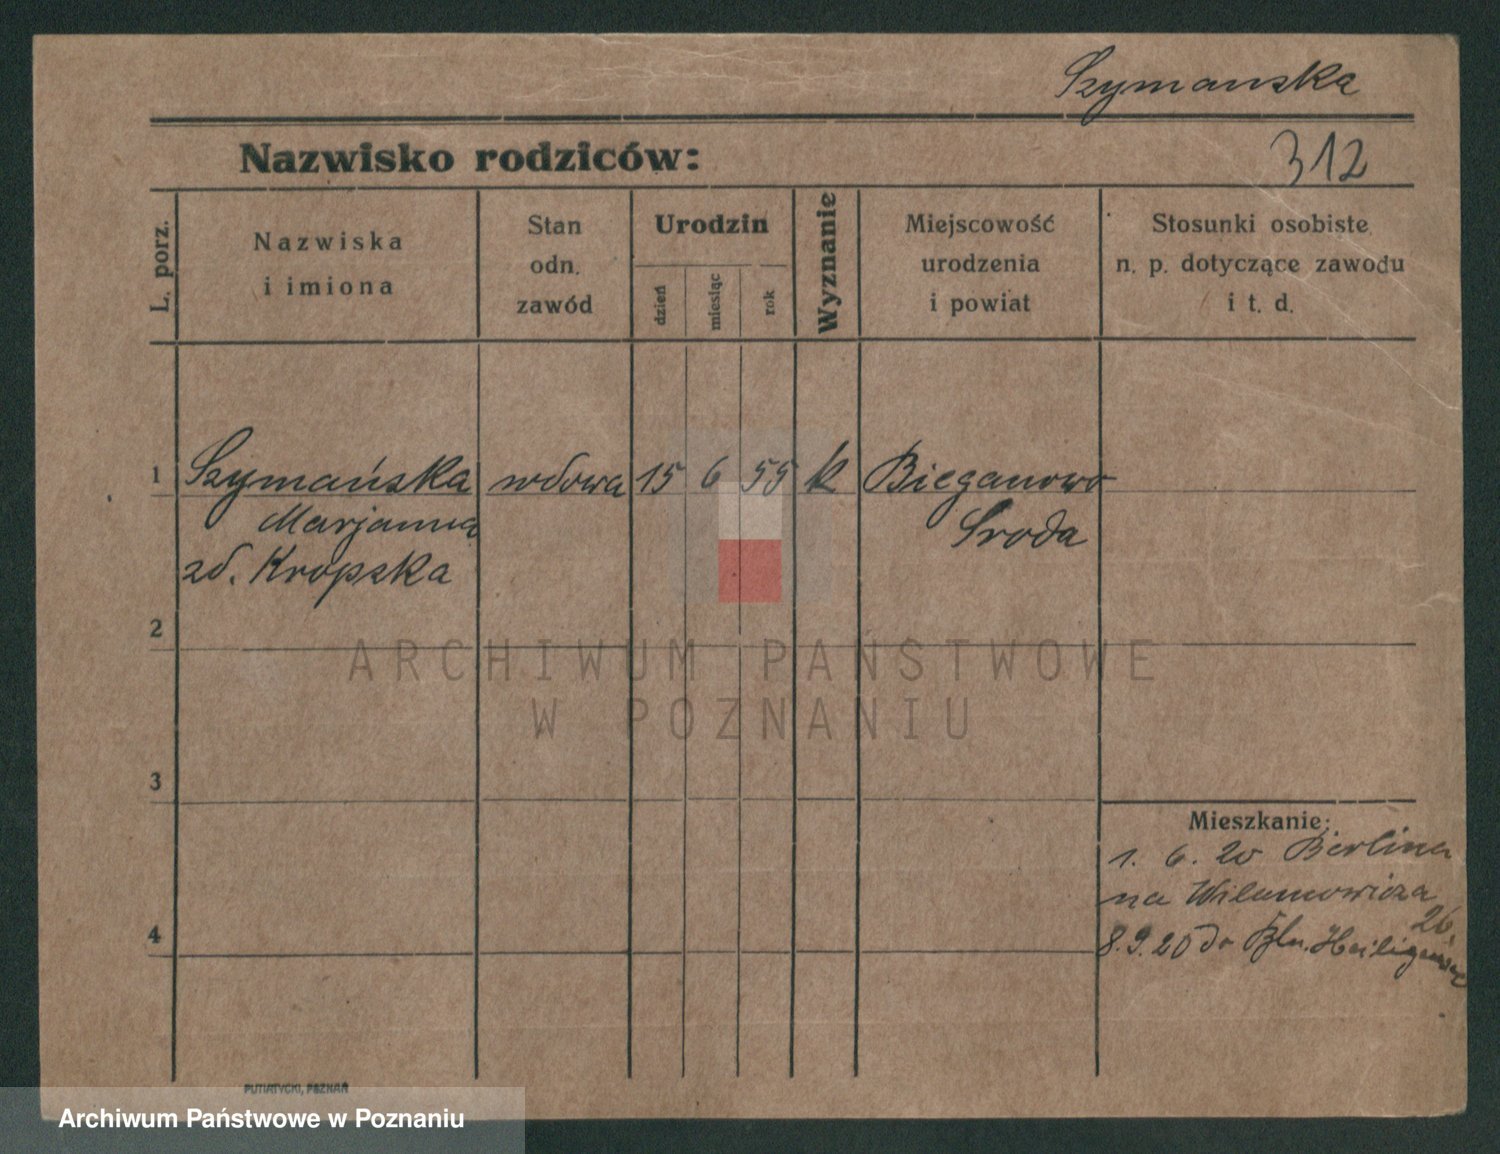 Szymanska
Nazwisko rodziców:
312
L. porz.
Nazwiska
i imiona
Stan
odn.
zawód
Urodzin
dzień
miesiąc
rok
Wyznanie
Miejscowość
urodzenia
i powiat
Stosunki osobiste
n. p. dotyczące zawodu
i t. d.
1 Szymańska wdowa 15 6 55 k Bieganowo
Marjanna Sroda
zd. Kropska
2
ARCHIWUM PAŃSTWOWE
W POZNANIU
3
Mieszkanie:
1. 6. 20 Berlina
na Wilamowicza
26.
4
8.9.20 do Bln.
PUTIATYCKI, POZNAŃ
Archiwum Państwowe w Poznaniu